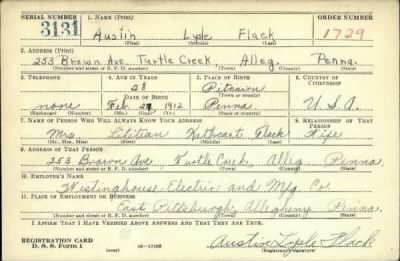 SERIAL NUMBER 1. NAME (Print) ORDER NUMBER
3131 Austin Lysle Flack 1729
(First) (Middle) (Last)
2. ADDRESS (Print)
253 Brown Ave. Turtle Creek, Alleg. Penna.
(Number and street or R. F. D. number) (Town) (County) (State)
3. TELEPHONE 4. AGE IN YEARS 5. PLACE OF BIRTH 6. COUNTRY OF CITIZENSHIP
28 Pitcairn
DATE OF BIRTH (Town or county)
none Feb. 27, 1912 Penna. U.S.A.
(Exchange) (Number) (Mo.) (Day) (Yr.) (State or country)
7. NAME OF PERSON WHO WILL ALWAYS KNOW YOUR ADDRESS 8. RELATIONSHIP OF THAT PERSON
Mrs. Kathcart Flack Wife
(Mr., Mrs., Miss) (First) (Middle) (Last)
9. ADDRESS OF THAT PERSON
253 Brown Ave, Turtle Creek, Alleg. Penna.
(Number and street or R. F. D. number) (Town) (County) (State)
10. EMPLOYER'S NAME
Westinghouse Electric and Mfg. Co.
11. PLACE OF EMPLOYMENT OR BUSINESS
East Pittsburgh, Allegheny Penna.
(Number and street or R. F. D. number) (Town) (County) (State)
I AFFIRM THAT I HAVE VERIFIED ABOVE ANSWERS AND THAT THEY ARE TRUE.
REGISTRATION CARD
D. S. S. Form 1 Austin Lysle Flack
(Registrant's signature)